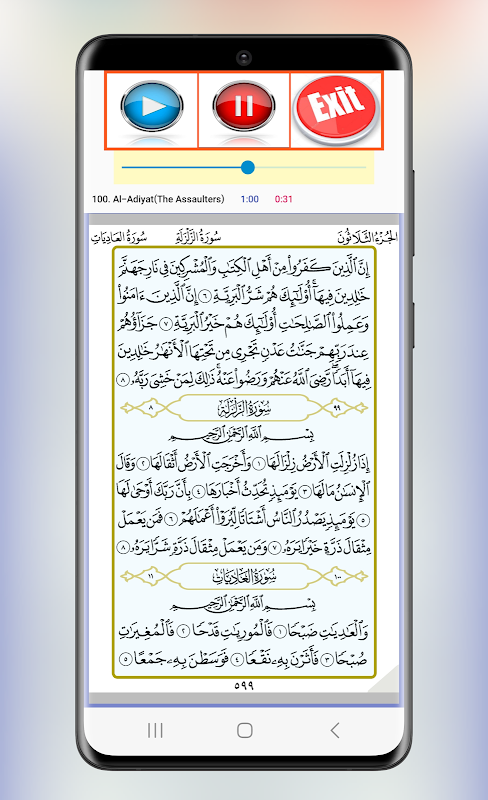 Exit
100. Al-Adiyat(The Assaulters) 1:00 0:31
الجُزْءُ الثَّلَاثُونَ سُورَةُ الزَّلْزَلَةِ سُورَةُ العَادِيَاتِ
إِنَّ ٱلَّذِينَ كَفَرُواْ مِنْ أَهْلِ ٱلْكِتَٰبِ وَٱلْمُشْرِكِينَ فِى نَارِ جَهَنَّمَ
خَٰلِدِينَ فِيهَآ أُوْلَٰٓئِكَ هُمْ شَرُّ ٱلْبَرِيَّةِ ٦ إِنَّ ٱلَّذِينَ ءَامَنُواْ
وَعَمِلُواْ ٱلصَّٰلِحَٰتِ أُوْلَٰٓئِكَ هُمْ خَيْرُ ٱلْبَرِيَّةِ ٧ جَزَآؤُهُمْ
عِندَ رَبِّهِمْ جَنَّٰتُ عَدْنٍ تَجْرِى مِن تَحْتِهَا ٱلْأَنْهَٰرُ خَٰلِدِينَ
فِيهَآ أَبَدًا رَّضِىَ ٱللَّهُ عَنْهُمْ وَرَضُواْ عَنْهُ ذَٰلِكَ لِمَنْ خَشِىَ رَبَّهُۥ ٨
٩٩ سُورَةُ الزَّلْزَلَةِ ٨
بِسْمِ ٱللَّهِ ٱلرَّحْمَٰنِ ٱلرَّحِيمِ
إِذَا زُلْزِلَتِ ٱلْأَرْضُ زِلْزَالَهَا ١ وَأَخْرَجَتِ ٱلْأَرْضُ أَثْقَالَهَا ٢ وَقَالَ
ٱلْإِنسَٰنُ مَا لَهَا ٣ يَوْمَئِذٍ تُحَدِّثُ أَخْبَارَهَا ٤ بِأَنَّ رَبَّكَ أَوْحَىٰ لَهَا
٥ يَوْمَئِذٍ يَصْدُرُ ٱلنَّاسُ أَشْتَاتًا لِّيُرَوْاْ أَعْمَٰلَهُمْ ٦ فَمَن يَعْمَلْ
مِثْقَالَ ذَرَّةٍ خَيْرًا يَرَهُۥ ٧ وَمَن يَعْمَلْ مِثْقَالَ ذَرَّةٍ شَرًّا يَرَهُۥ ٨
١٠٠ سُورَةُ العَادِيَاتِ ١١
بِسْمِ ٱللَّهِ ٱلرَّحْمَٰنِ ٱلرَّحِيمِ
وَٱلْعَٰدِيَٰتِ ضَبْحًا ١ فَٱلْمُورِيَٰتِ قَدْحًا ٢ فَٱلْمُغِيرَٰتِ
صُبْحًا ٣ فَأَثَرْنَ بِهِۦ نَقْعًا ٤ فَوَسَطْنَ بِهِۦ جَمْعًا ٥
٥٩٩